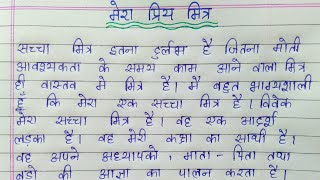 मेरा प्रिय मित्र
सच्चा मित्र इतना दुर्लभ है जितना मोती
आवश्यकता के समय काम आने वाला मित्र
ही वास्तव में मित्र है। मैं बहुत भाग्यशाली
हूँ कि मेरा एक सच्चा मित्र है। विवेक
मेरा सच्चा मित्र है। वह एक आदर्श
लड़का है। वह मेरी कक्षा का साथी है।
वह अपने अध्यापको, माता-पिता तथा
बड़ो की आज्ञा का पालन करता है।